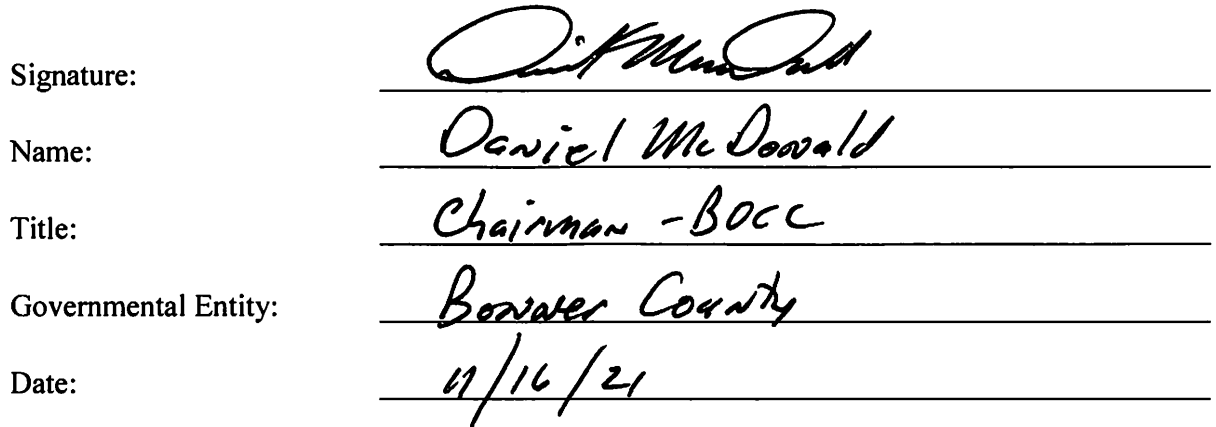 Signature:
Name: Daniel McDonald
Title: Chairman - BOCC
Governmental Entity: Bonner County
Date: 11/16/21